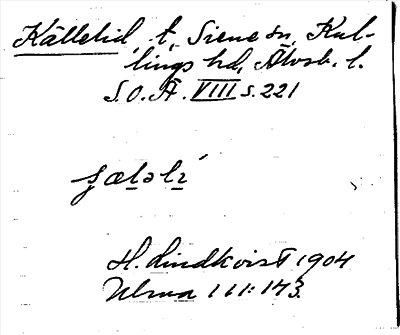 Källelid, t, Siene sn, Kul-
lings hd, Älvsb. l.
S.O.Ä. VIII s. 221
H. Lindkvist 1904
Ulma 111:143.